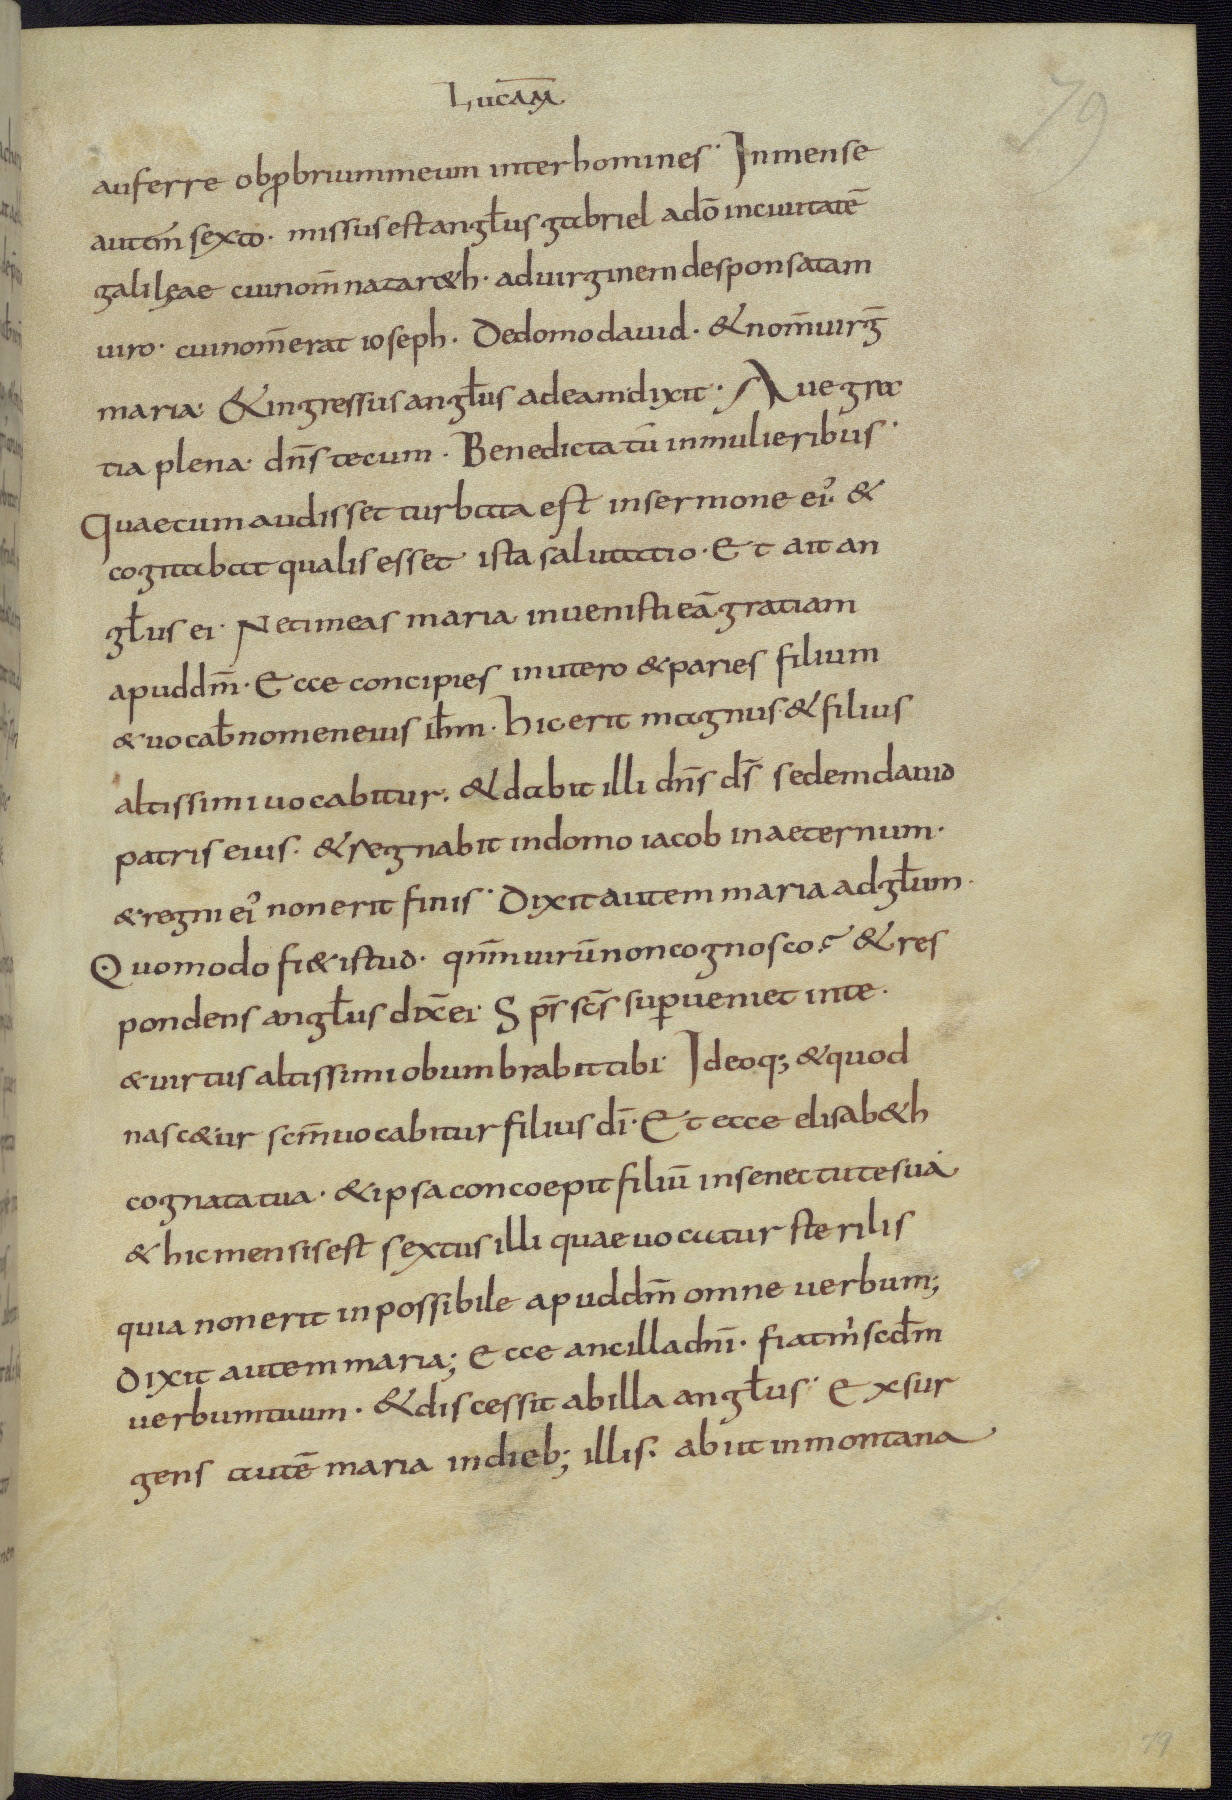 Lucam̅
79
auferre obp̱brium meum inter homines· In mense
aut̅m sexto· missus est angl̅us gabriel a do̅ in ciuitate̅
galilęae cui nom̅ nazar&h· ad uirginem desponsatam
uiro· cui nom̅ erat ioseph· De domo dauid· & nom̅ uirg̅
maria· & ingressus angl̅us ad eam dixit· Aue gra
tia plena· dn̅s tecum· Benedicta tu̅ in mulieribus·
Quae cum audisset turbata est in sermone ei᾿· &
cogitabat qualis esset ista salutatio· Et ait an
gl̅us ei· Ne timeas maria inuenisti ea̅ gratiam
apud dm̅· Ecce concipies in utero & paries filium
& uocab̅ nomen eius ih̅m· hic erit magnus & filius
altissimi uocabitur· & dabit illi dn̅s ds̅ sedem dauid
patris eius· & regnabit in domo iacob in aeternum·
& regni ei᾿ non erit finis· Dixit autem maria ad gl̅um·
Quomodo fi& istud· qnm̅ uiru̅ non cognosco? & res
pondens angl̅us dix̅ ei· Sps̅ scs̅ sup̱ueniet in te·
& uirtus altissimi obumbrabit tibi· Ideoq; & quod
nasc&ur scm̅ uocabitur filius di̅· Et ecce elisab&h
cognata tua· & ipsa concoepit filiu̅ in senectute sua·
& hic mensis est sextus illi quae uocatur sterilis
quia non erit inpossibile apud dm̅ omne uerbum;
Dixit autem maria; Ecce ancilla dni̅· fiat m᾿ scd̅m
uerbum tuum· & discessit ab illa angl̅us· Exsur
gens aute̅ maria in dieb; illis· abiit in montana
79